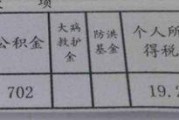 项
公积金 大病救护金 防洪基金 个人所得税
702 19.2